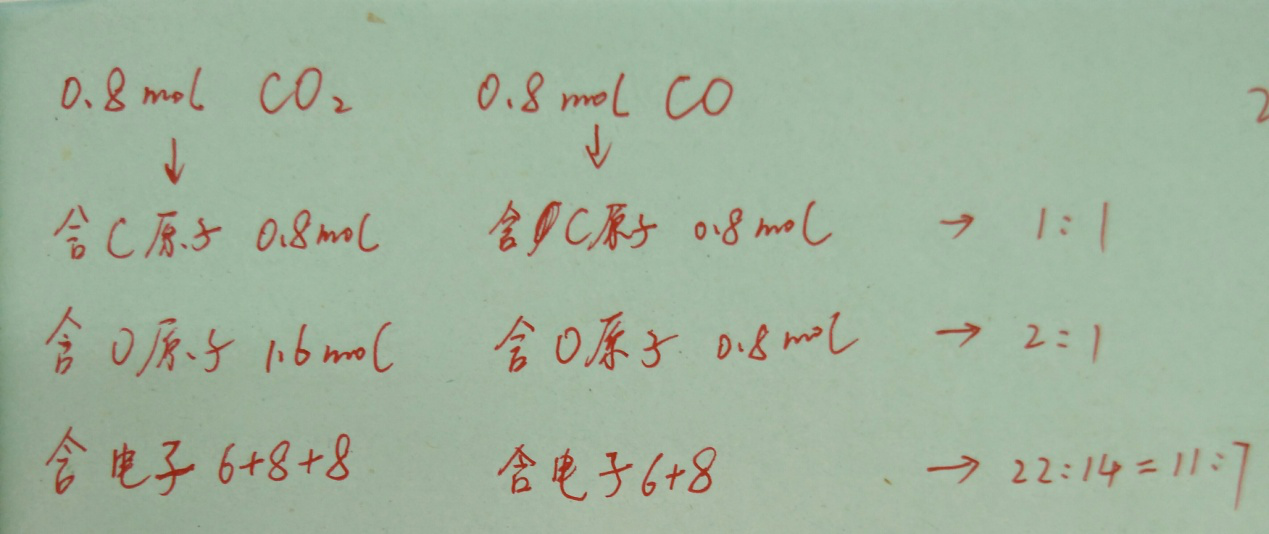 0.8 mol CO₂ 0.8 mol CO
↓ ↓
含C原子 0.8mol 含C原子 0.8mol → 1:1
含O原子 1.6mol 含O原子 0.8mol → 2:1
含电子 6+8+8 含电子 6+8 → 22:14=11:7